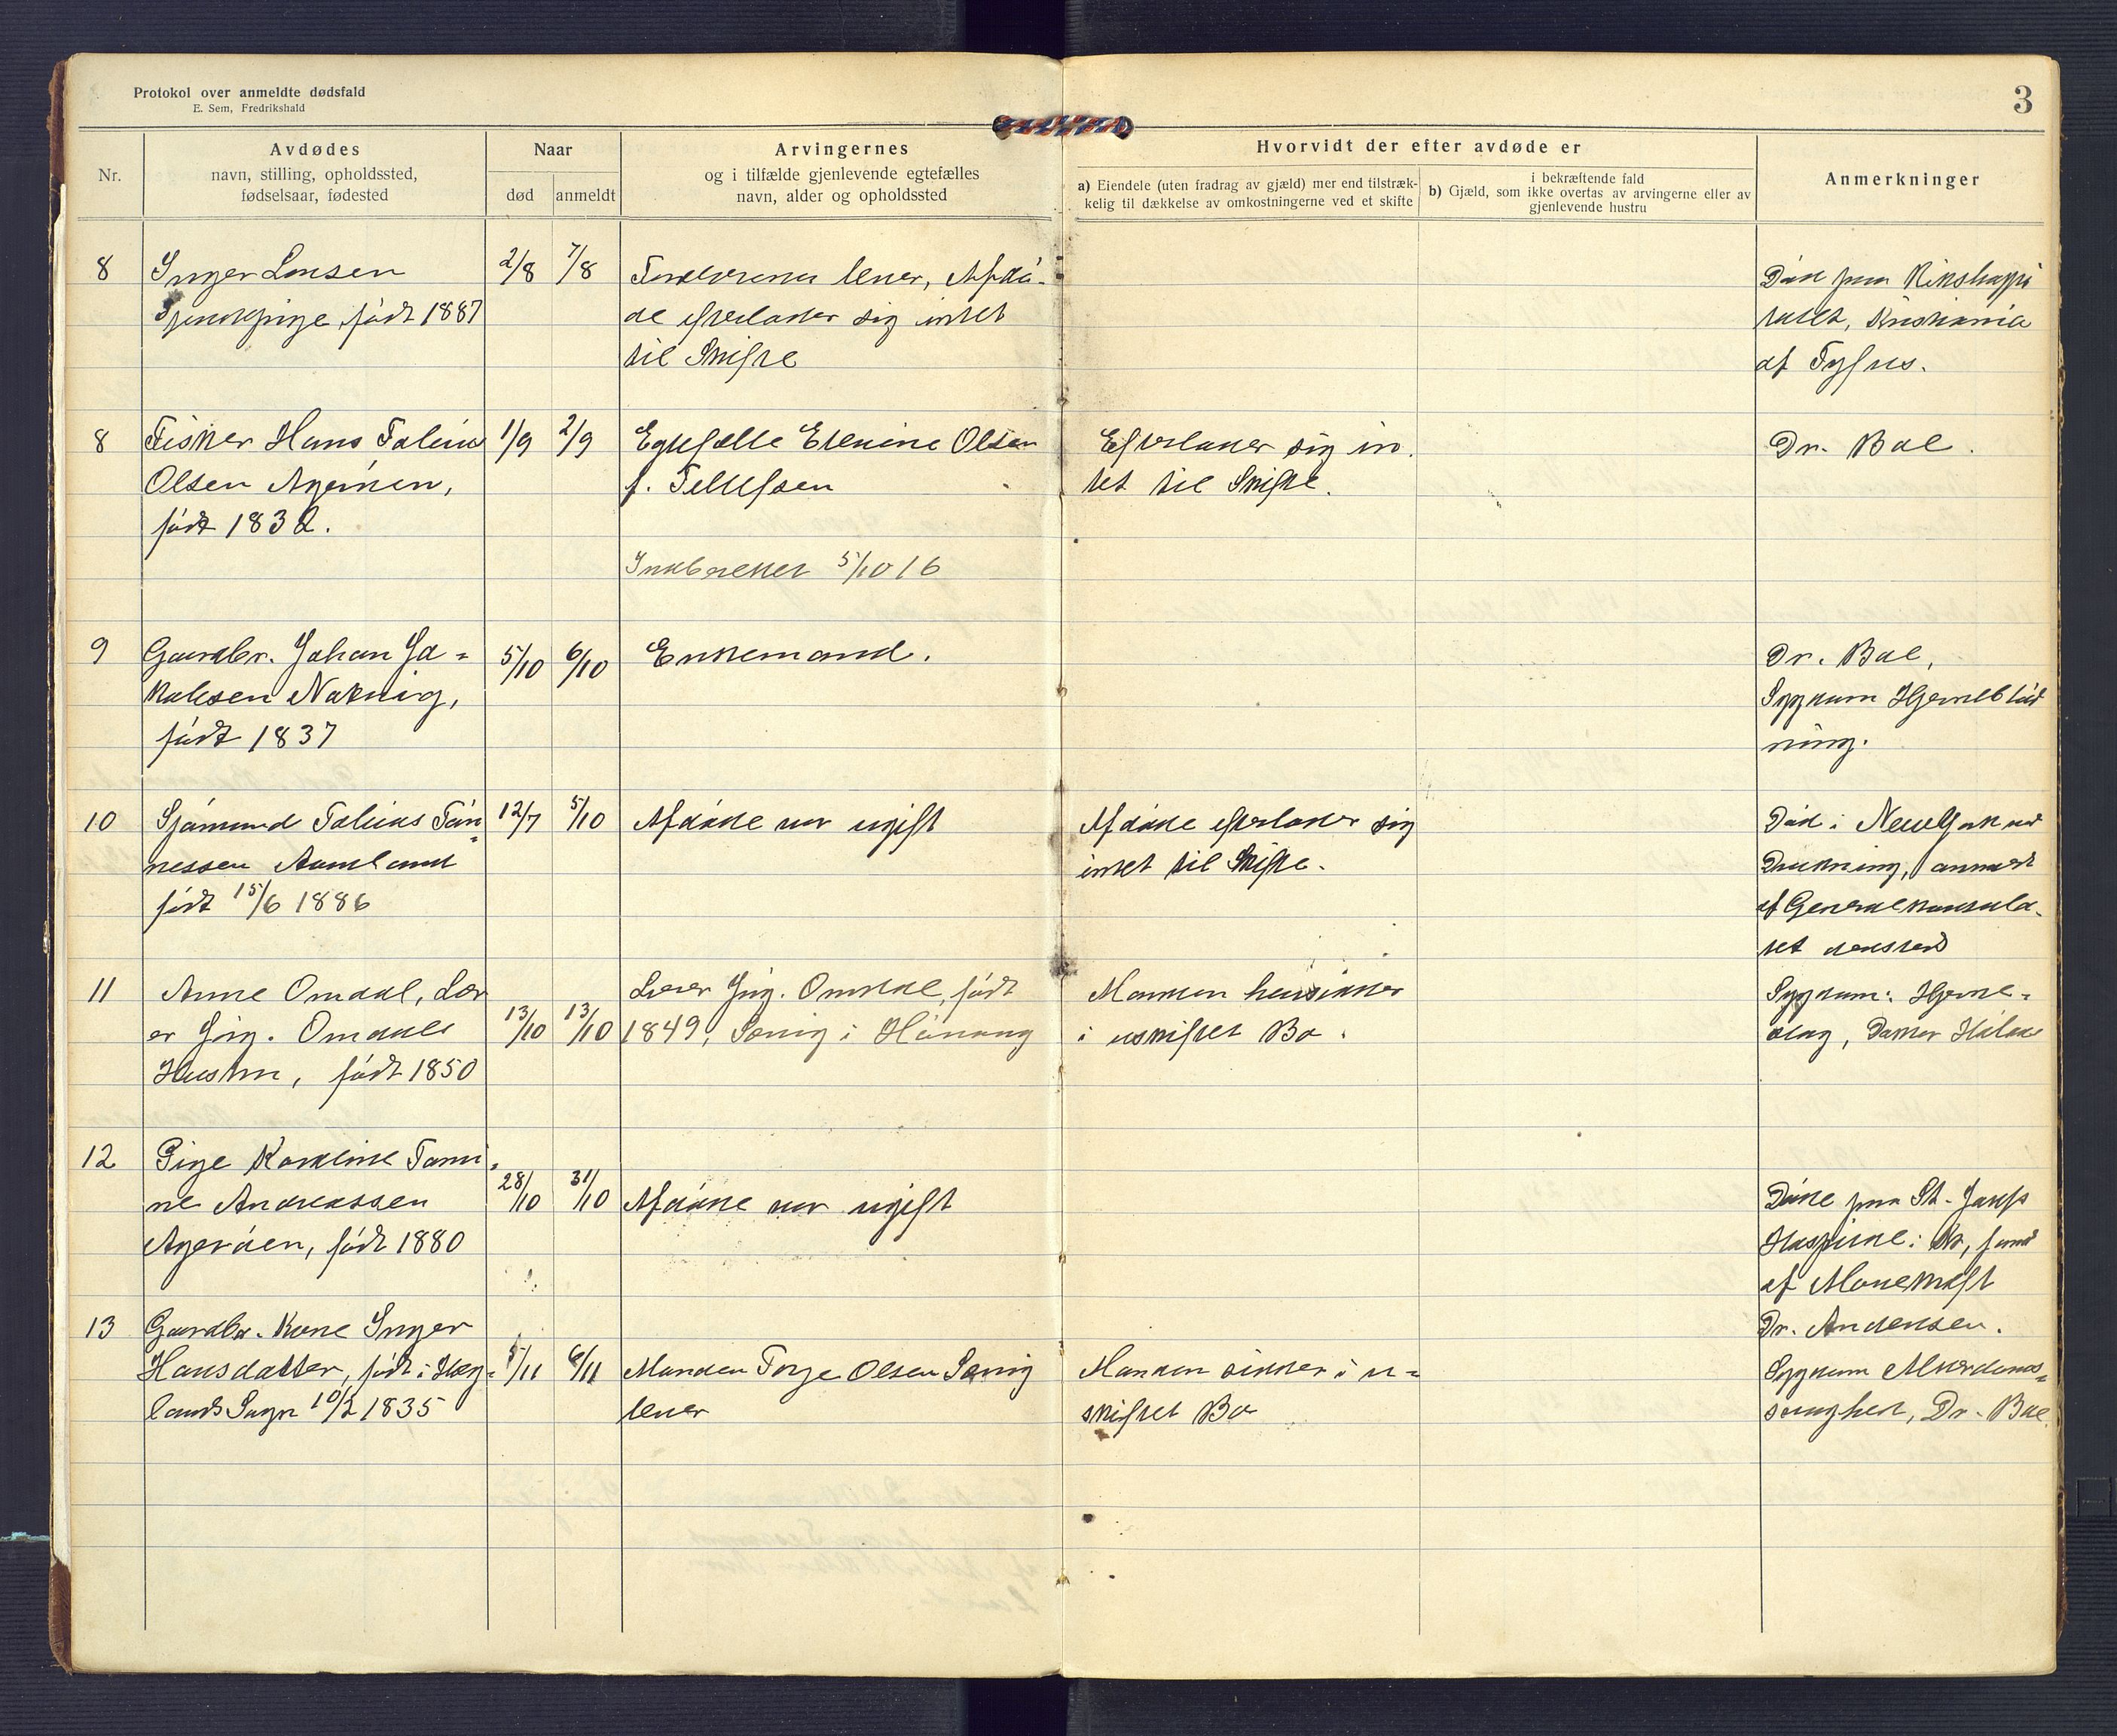 Protokol over anmeldte dødsfald
E. Sem, Fredrikshald
3
Nr.
Avdødes
navn, stilling, opholdssted,
fødselsaar, fødested
Naar
død
anmeldt
Arvingernes
og i tilfælde gjenlevende egtefælles
navn, alder og opholdssted
Hvorvidt der efter avdøde er
a) Eiendele (uten fradrag av gjæld) mer end tilstræk-
kelig til dækkelse av omkostningerne ved et skifte
i bekræftende fald
b) Gjæld, som ikke overtas av arvingerne eller av
gjenlevende hustru
Anmerkninger
8
Inger Larsen
født 1887
2/8
7/8
Forældrene lever, Afdø-
de efterlader sig intet
til Skifte
Død paa Rikshospi
talet, Kristiania
af Tyfus.
8
Fisker Hans Tobias
Olsen Agerøen,
født 1832.
1/9
2/9
Egtefælle Elenine Olsen
f. Tellefsen
Indberettet 5/10 16
Efterlader sig in
tet til Skifte.
Dr. Bal.
9
Gaardbr. Johan Ja=
kobsen
født 1837
5/10
6/10
Enkemand.
Dr. Bal,
Sygdom Hjerneblød
ning.
10
Sjømand Tobias Tøn=
nessen Aamland
født 15/6 1886
12/7
5/10
Afdøde var ugift
Afdøde efterlader sig
intet til Skifte.
Død i New York ved
Drukning, anmeldt
af Generalkonsula-
tet dersted
11
Anne Omdal, Lær
er Jørg. Omdals
Hustru, født 1850
13/10
13/10
Lærer Jørg. Omdal, født
1849, i Høvaag
Manden hensidder
i uskiftet Bo.
Sygdom: Hjerne=
slag,
12
Pige Karoline Tomi=
ne Andreassen
Agerøen, født 1880
28/10
31/10
Afdøde var ugift
Døde paa St. Josefs
Hospital i
af
Dr. Andersen.
13
Gaardbr. Kone Inger
Hansdatter, født i Høg=
lands Sogn 10/2 1835
5/11
6/11
Manden Torje Olsen
lever
Manden sidder i u=
skiftet Bo
Sygdom Alderdoms=
svaghed, Dr. Bal.